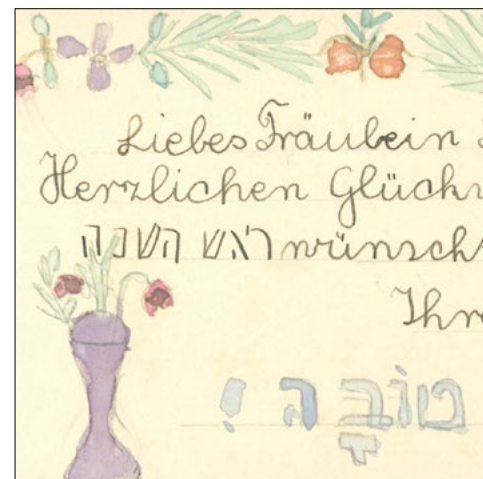 Liebes Fräulein
Herzlichen Glückw
ראש השנה wünscht
Ihre
טוֹבָה !